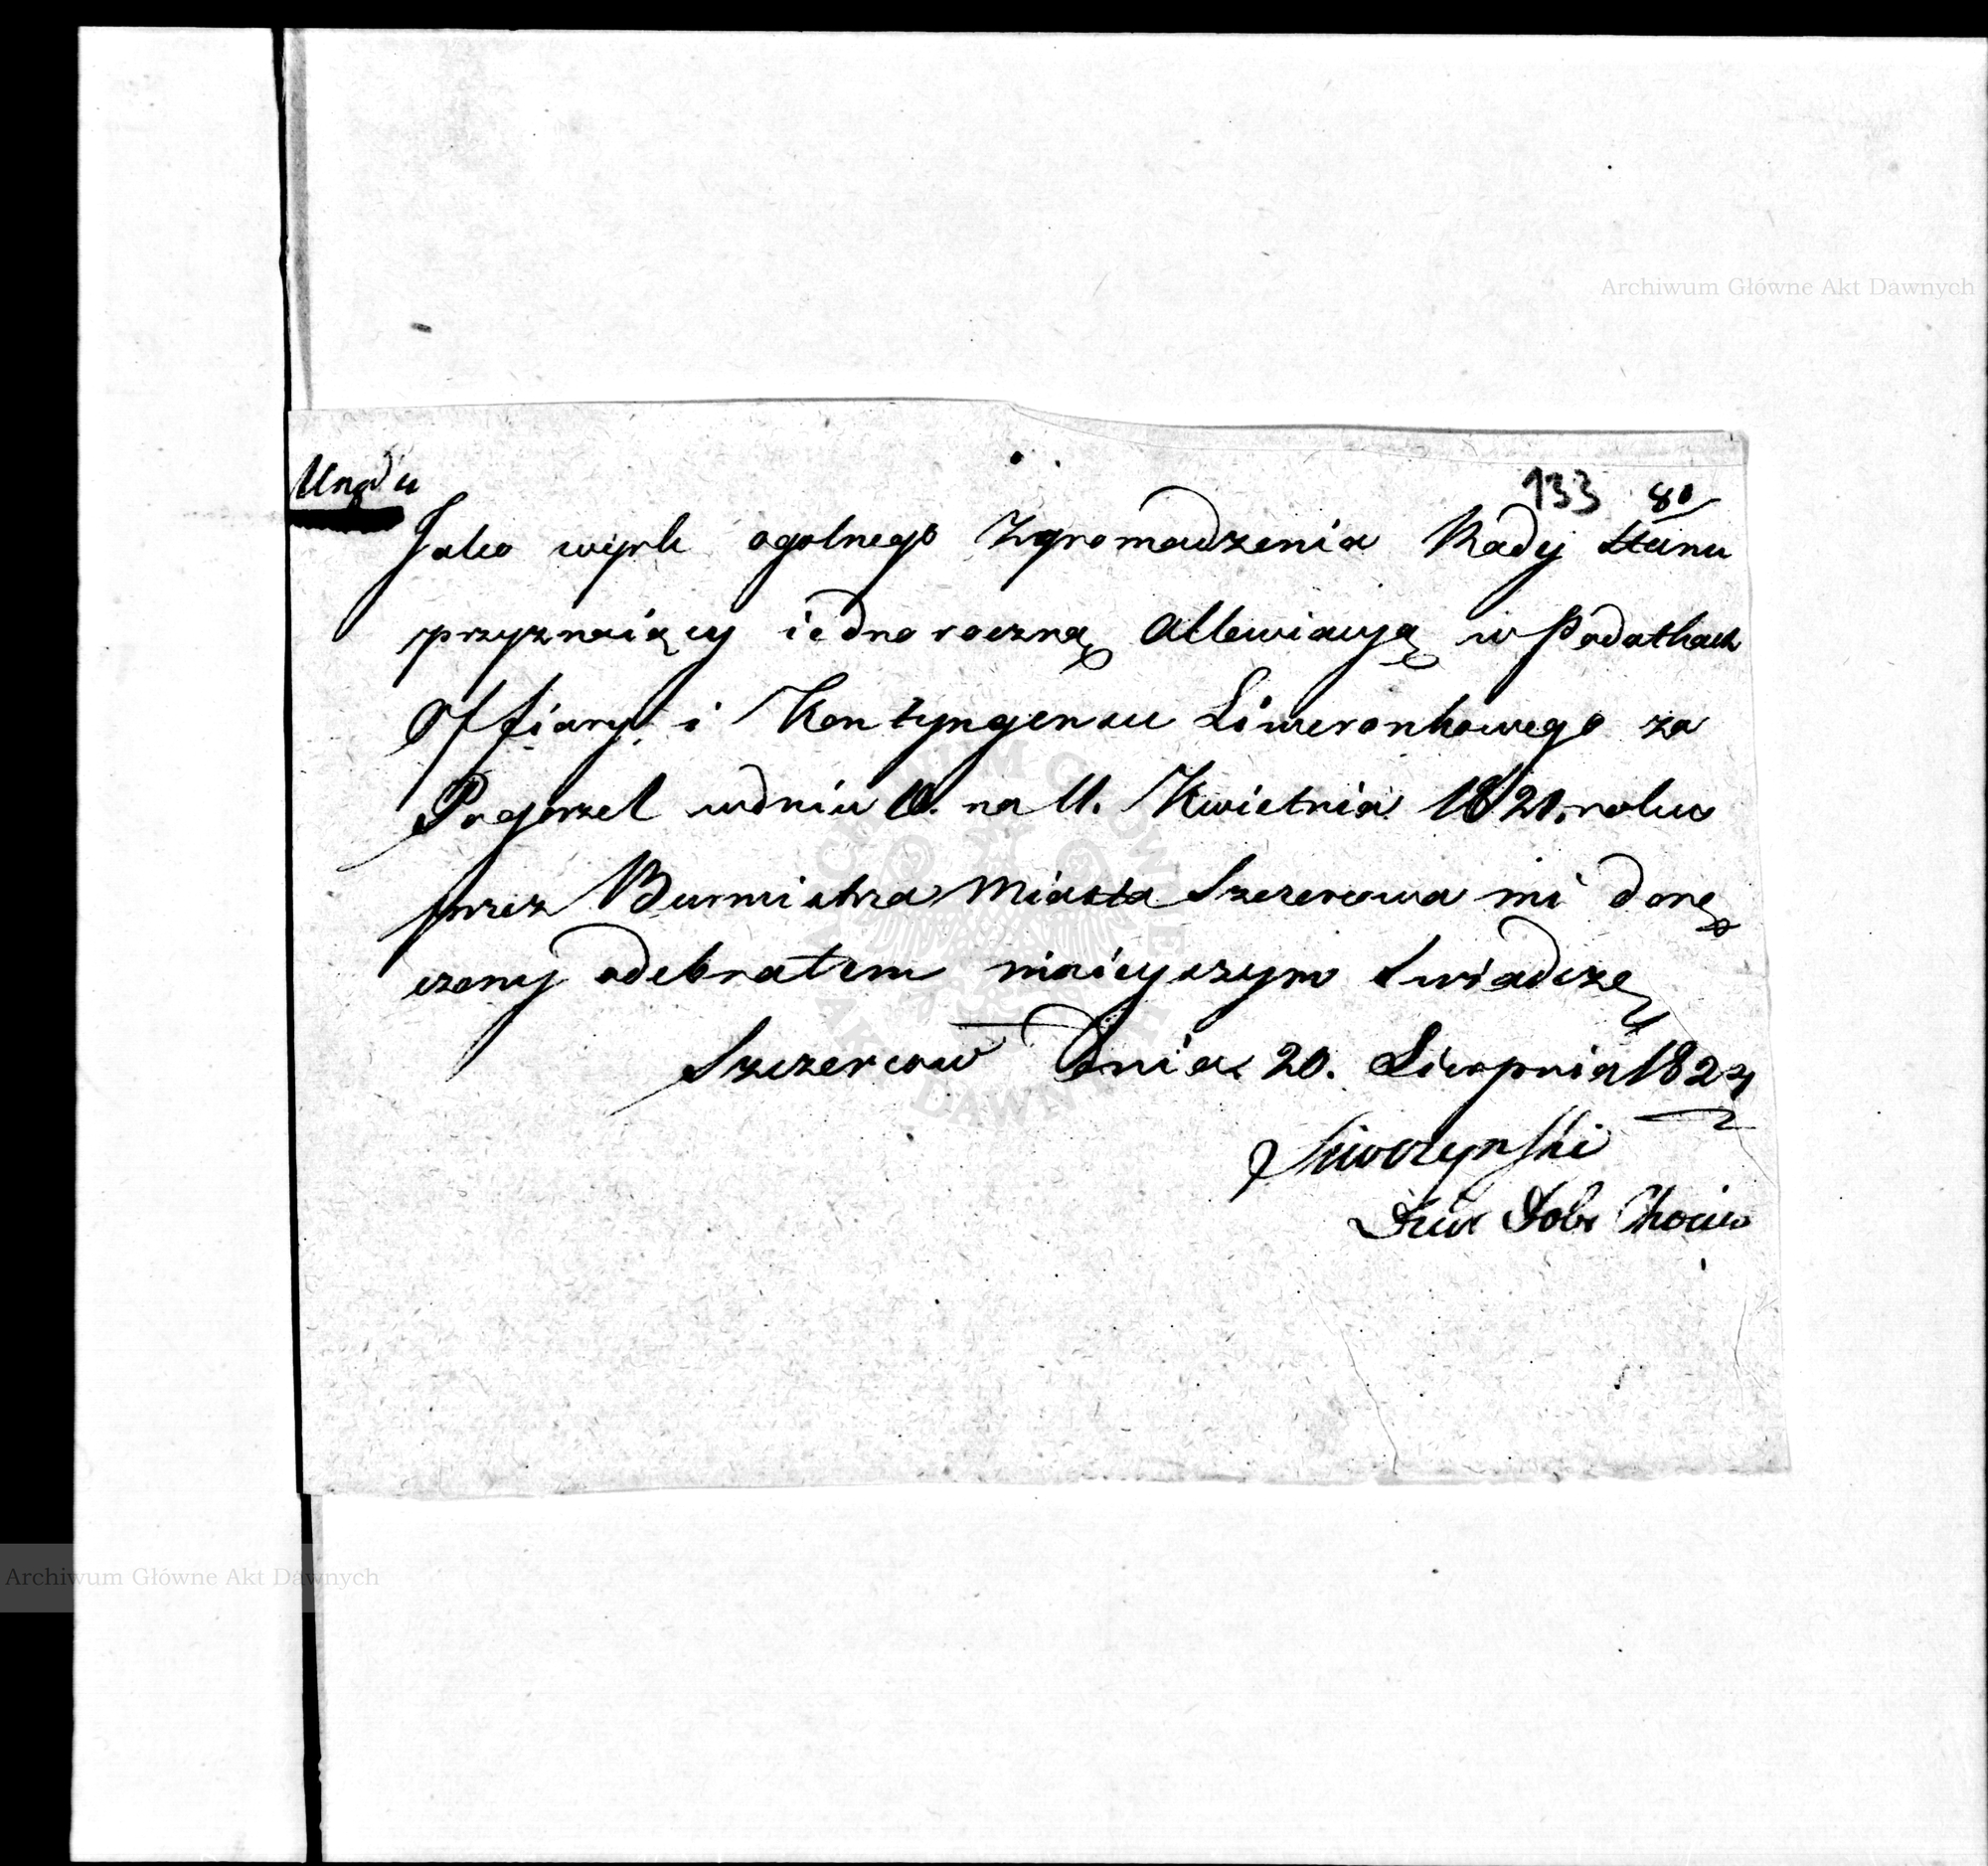 Archiwum Główne Akt Dawnych
133 80
Jako wyrk ogolnego Zgromadzenia Rady Stanu
przyznaiący iednoroczną Allewiacyą w Podatkach
Offiary i Kontyngensu Liwerankowego za
Pogorzel wdniu 10. na 11. Kwietnia 1821. roku
przez Burmistrza Miasta Szczercowa mi dorę
czony odebrałem nieieyszym Swiadczę
Szczercow Dnia 20. Sierpnia 1824
Dobr
Archiwum Główne Akt Dawnych